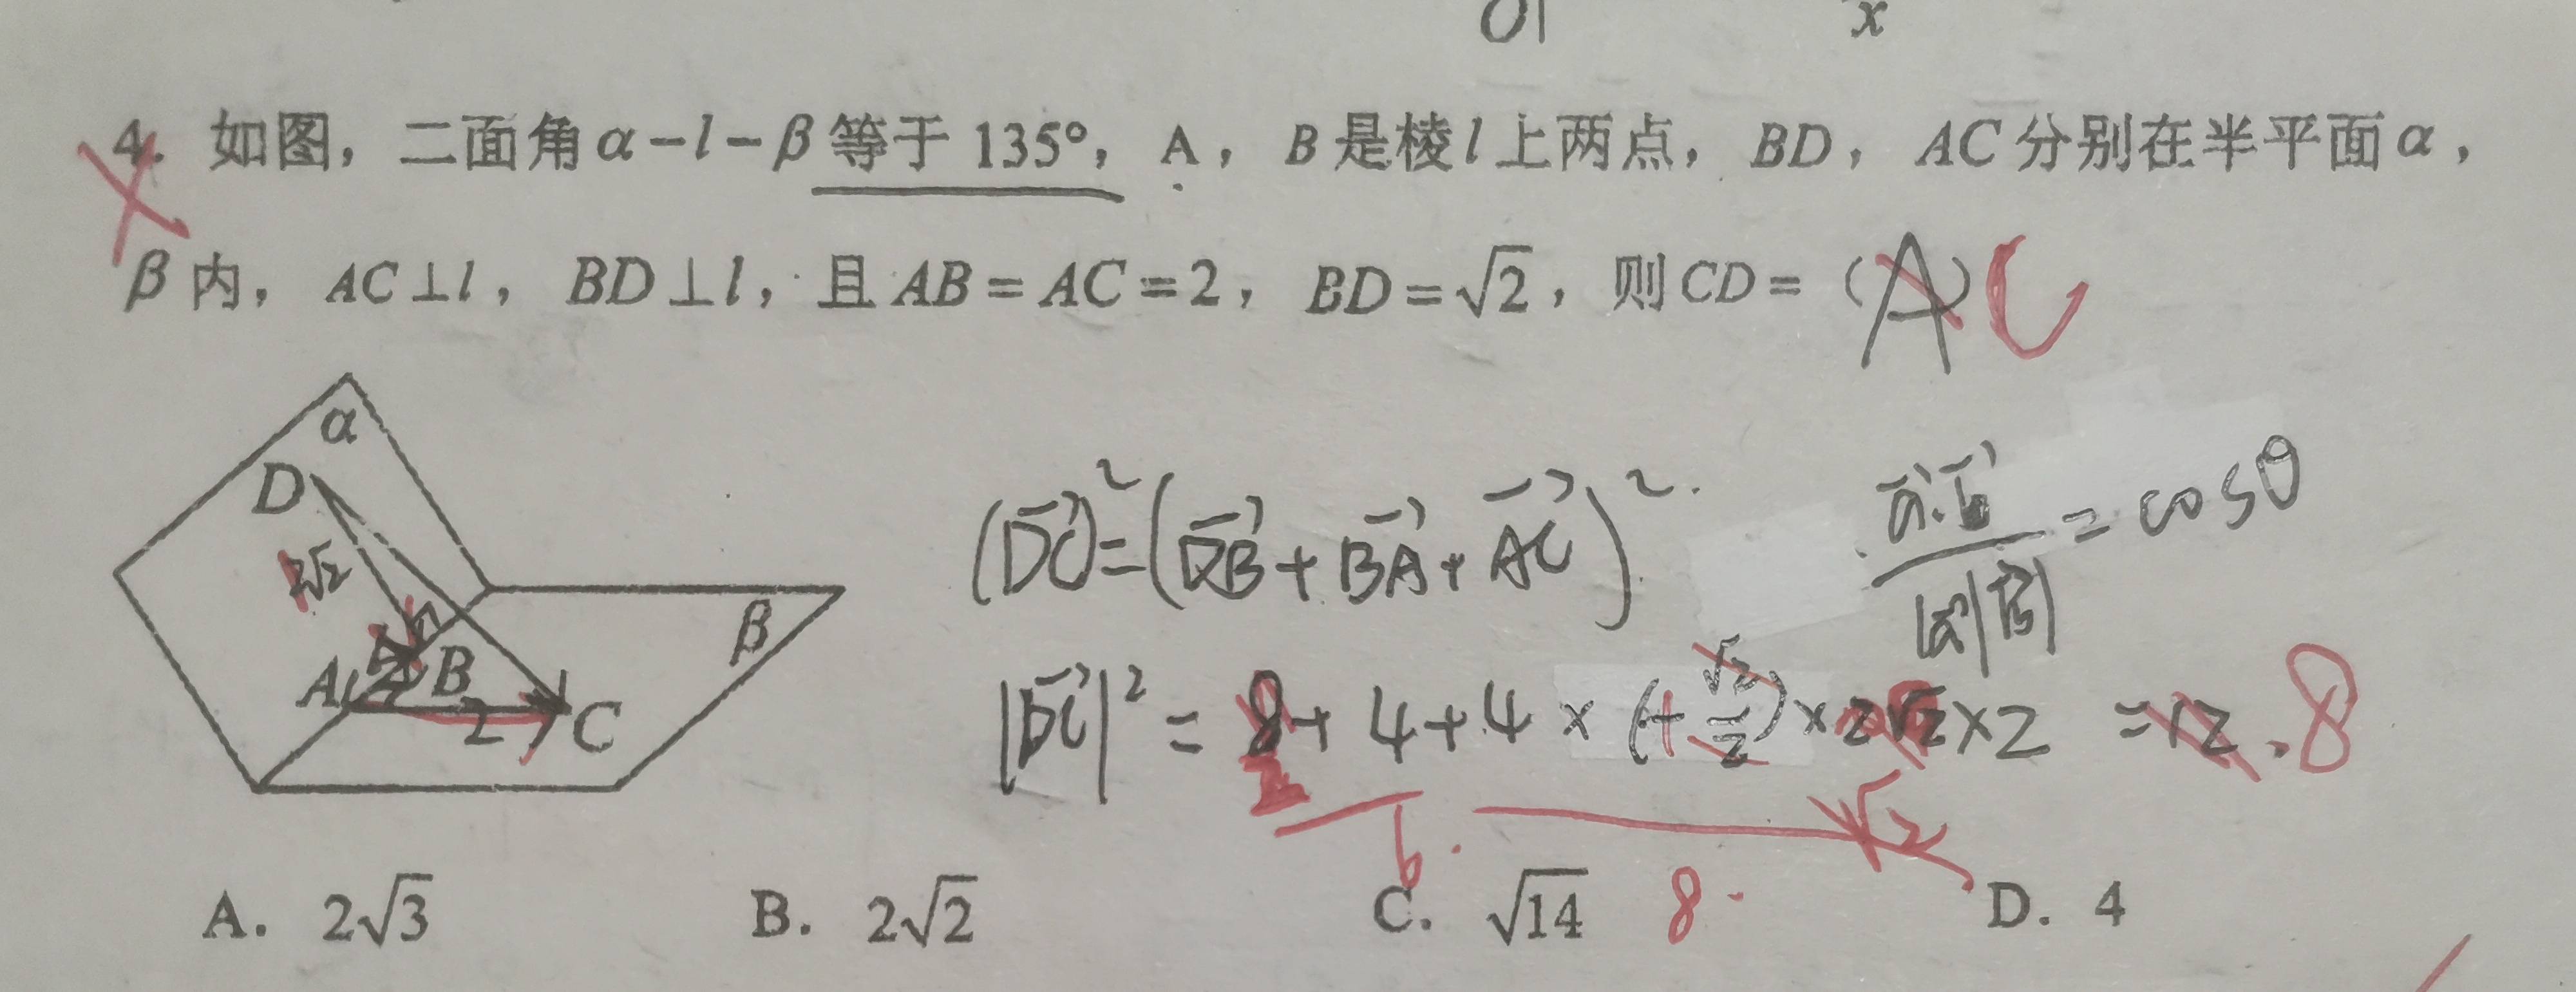 01 x
4. 如图，二面角α-l-β等于 135°，A，B是棱l上两点，BD，AC分别在半平面α，
β内，AC⊥l，BD⊥l，且AB=AC=2，BD=√2，则CD=（A）C
α
D
2√2
β
A B
2 C
(DC)²=(DB+BA+AC)².
a·b/|a||b|=cosθ
|DC|²=8+4+4×(+√2/2)×2√2×2=12.8
2
6.
√2
8.
A. 2√3 B. 2√2 C. √14 D. 4